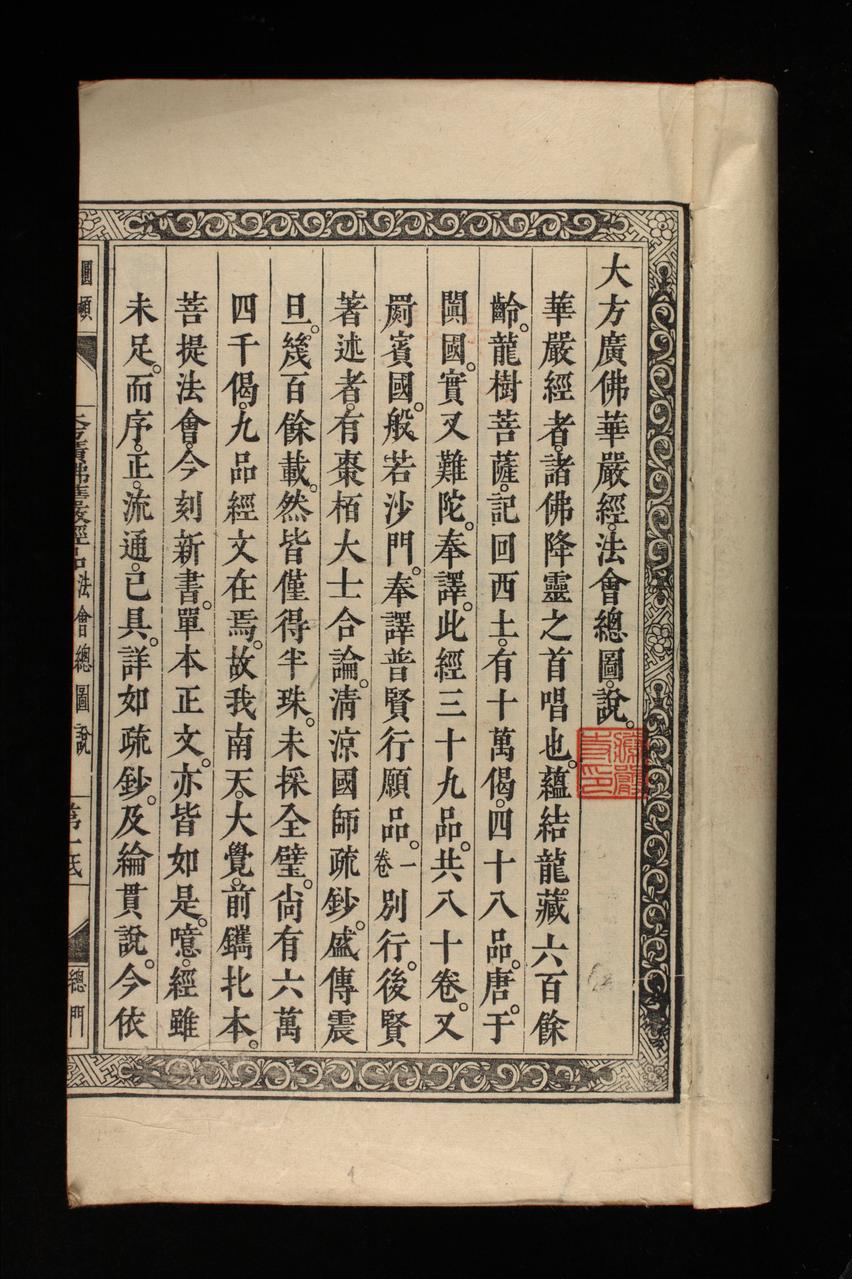 大方廣佛華嚴經。法會總圖說。
華嚴經者。諸佛降靈之首唱也。蘊結龍藏。六百餘
齡。龍樹菩薩。記回西土。有十萬偈。四十八品。唐。于
闐國。實叉難陀。奉譯。此經三十九品。共八十卷。又
罽賓國。般若沙門。奉譯普賢行願品。一卷別行。後賢
著述者。有棗栢大士合論。清涼國師疏鈔。盛傳震
旦。幾百餘載。然皆僅得半珠。未採全璧。尙有六萬
四千偈。九品經文在焉。故我南天。大覺。前鐫北本。
菩提法會。今刻新書。單本正文。亦皆如是。噫。經雖
未足。而序。正。流通。已具。詳如疏鈔。及綸貫說。今依
圖頫
大方廣佛華嚴經 法會總圖說
第一
總門